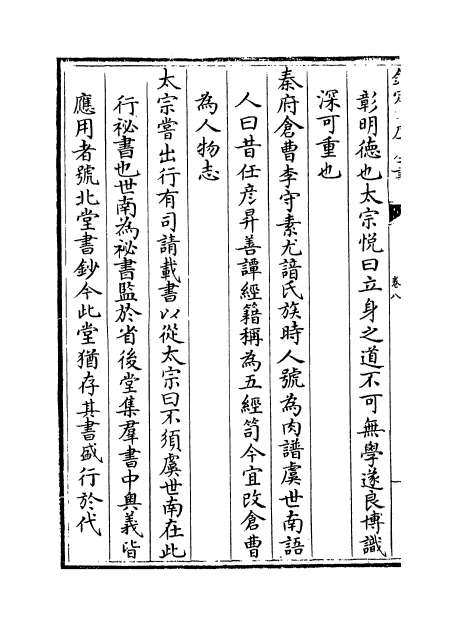 彰明德也太宗悦曰立身之道不可無學遂良博識
深可重也
秦府倉曹李守素尤諳氏族時人號為肉譜虞世南語
人曰昔任彦昇善譚經籍稱為五經笥今宜改倉曹
為人物志
太宗嘗出行有司請載書以從太宗曰不須虞世南在此
行祕書也世南為祕書監於省後堂集羣書中奥義皆
應用者號北堂書鈔今此堂猶存其書盛行於代
卷八